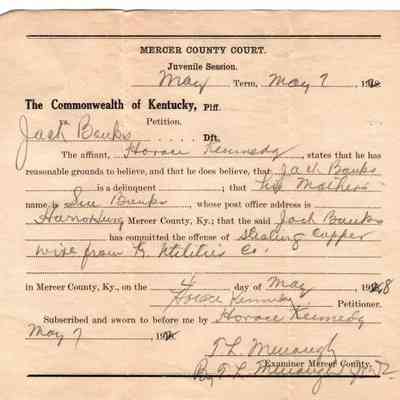 MERCER COUNTY COURT.
Juvenile Session.
May Term, May 7 19
The Commonwealth of Kentucky, Plf.
Vs. Petition.
Jack Banks Dft.
The affiant, Horace Kennedy, states that he has
reasonable grounds to believe, and that he does believe, that Jack Banks
is a delinquent; that his Mothers
name is Sue Banks, whose post office address is
Harrodsburg Mercer County, Ky.; that the said Jack Banks
has committed the offense of Stealing Copper
wire from K. Utilities Co.
in Mercer County, Ky., on the 4 day of May 1928
Horace Kennedy, Petitioner.
Subscribed and sworn to before me by Horace Kennedy
May 7 19
T. L. Menaugh
Examiner Mercer County.
By T. L. Menaugh Jr.